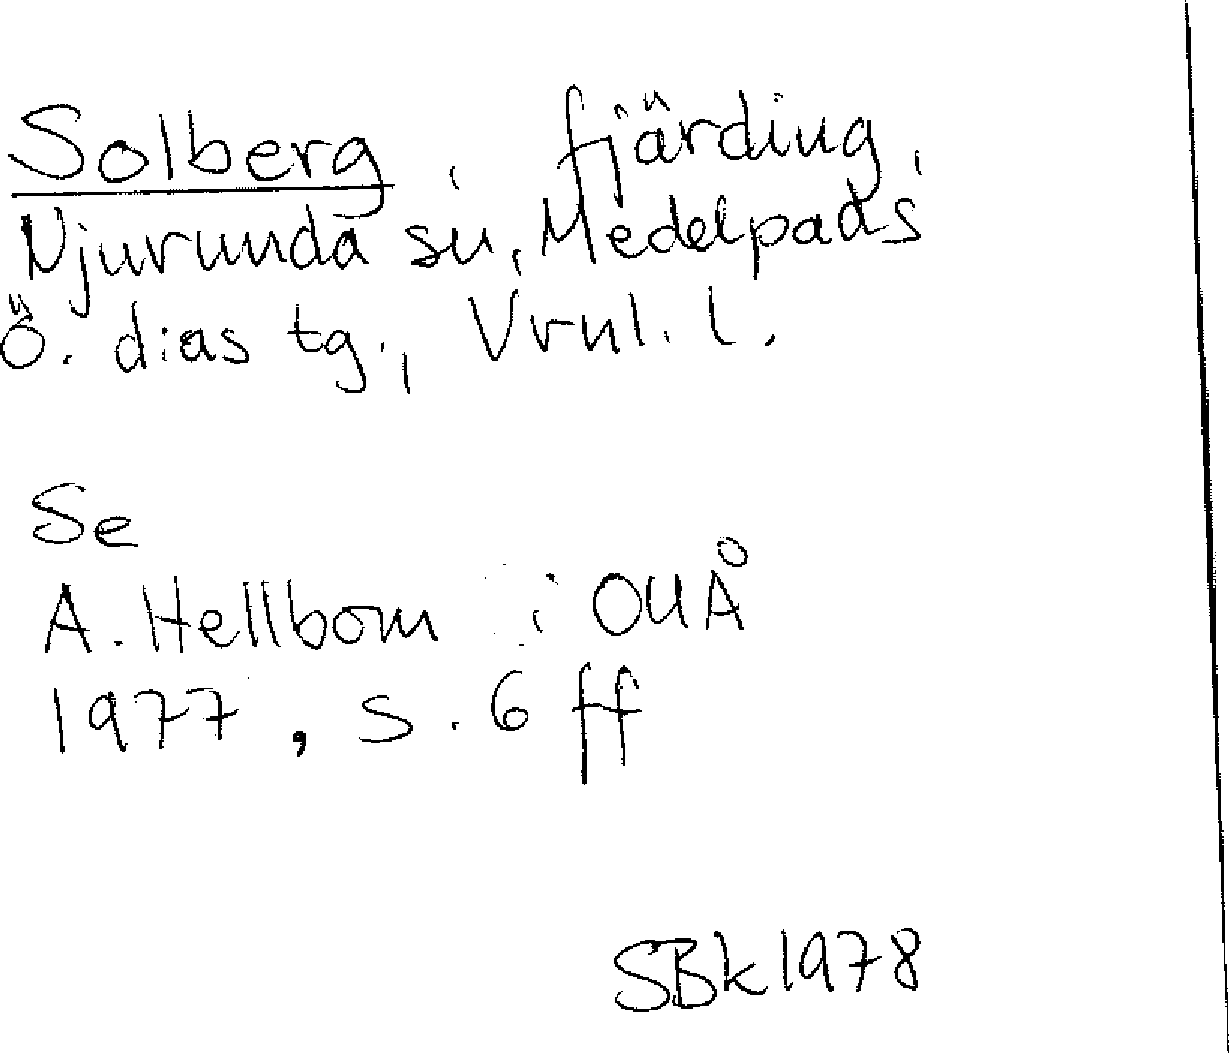 Solberg, fjärding,
Njurunda sn, Medelpads
ö. dlas tg., Vrnl. l.
Se
A. Hellbom i OUÅ
1977, s. 6 ff
SBk 1978